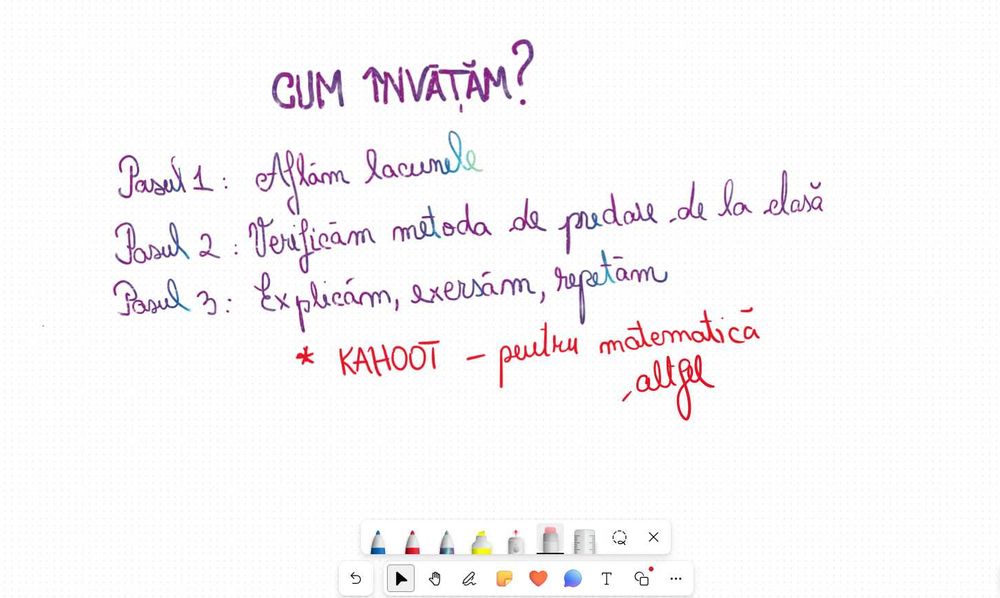 CUM ÎNVĂȚĂM?
Pasul 1: Aflăm lacunele
Pasul 2: Verificăm metoda de predare de la clasă
Pasul 3: Explicăm, exersăm, repetăm
* KAHOOT - pentru matematică
altfel
T